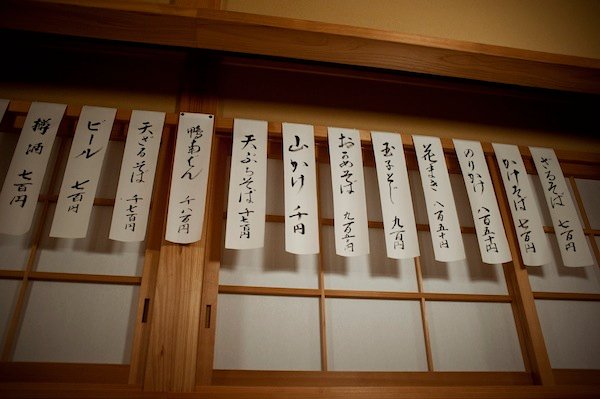 ざるそば 七百円
かけそば 七百円
のりかけ 八百五十円
花まき 八百五十円
玉子とじ 九百円
おかめそば 九百円
山かけ 千円
天ぷらそば 千七百円
鴨南ばん 千八百円
天ざるそば 千七百円
ビール 七百円
樽酒 七百円